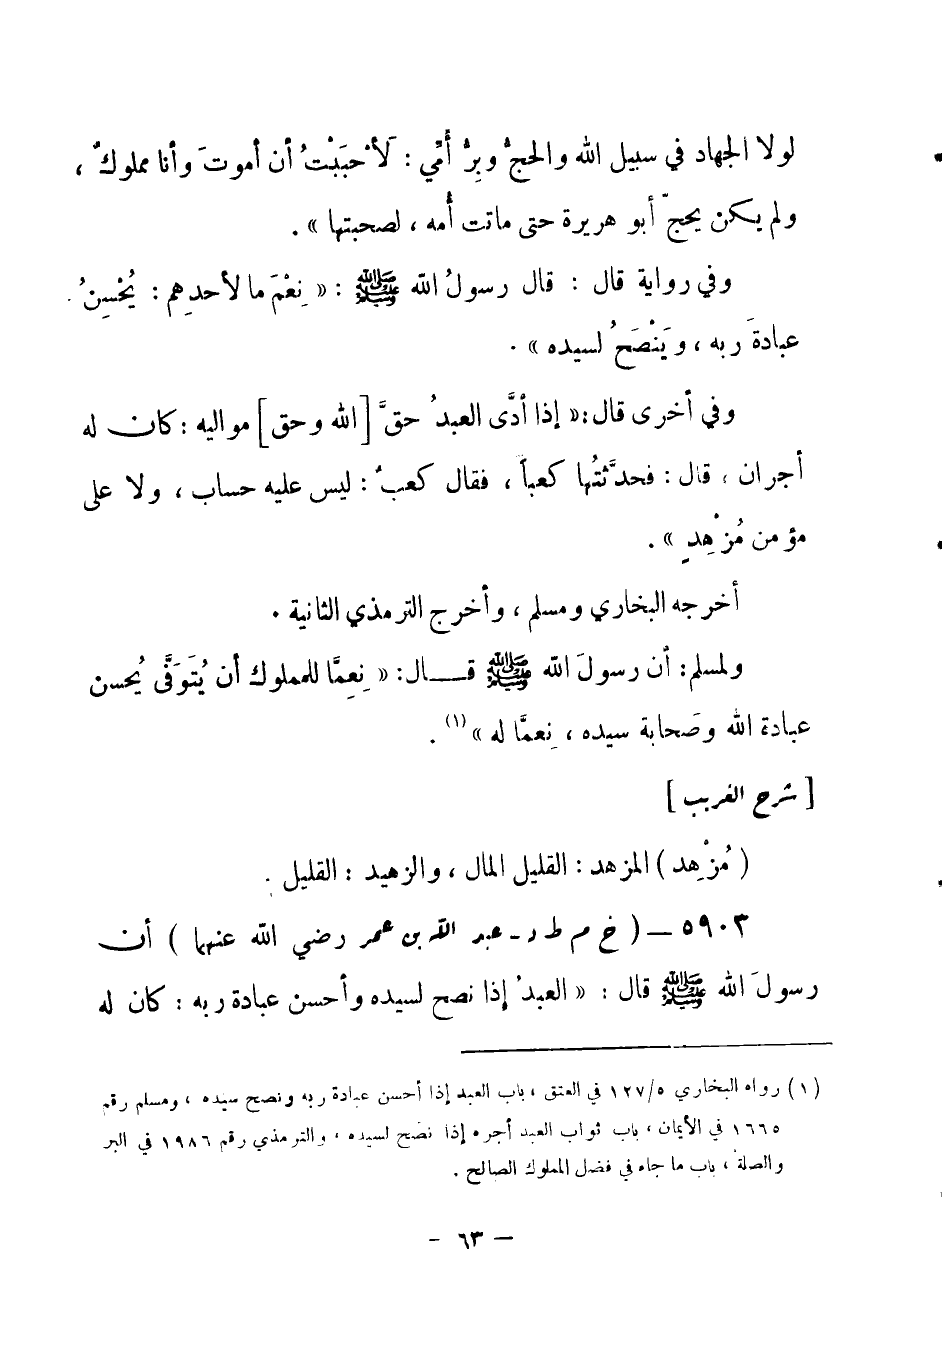 لولا الجهاد في سبيل الله والحجُّ وبِرُّ أُمِّي : لَأَحْبَبْتُ أن أموتَ وأنا مملوكٌ ،
ولم يكن يحجّ أبو هريرة حتى ماتت أُمه ، لصحبتها » .
وفي رواية قال : قال رسولُ الله ﷺ : « نِعْمَ ما لأحدِهم : يُحْسِنُ
عبادةَ ربه ، ويَنْصَحُ لسيده » .
وفي أخرى قال : « إذا أدَّى العبدُ حقَّ [الله وحق] مواليه : كان له
أجران ، قال : فحدَّثتُها كعباً ، فقال كعبٌ : ليس عليه حساب ، ولا على
مؤمن مُزْهِدٍ » .
أخرجه البخاري ومسلم ، وأخرج الترمذي الثانية .
ولمسلم : أن رسولَ الله ﷺ قال : « نِعِمَّا للمملوك أن يُتَوَفَّى يُحسن
عبادة الله وصَحابة سيده ، نِعمَّا له » (١) .
[ شرح الغريب ]
( مُزْهِد ) المزهد : القليل المال ، والزهيد : القليل .
٥٩٠٣ — ( خ م ط د - عبد الله بن عمر رضي الله عنهما ) أن
رسولَ الله ﷺ قال : « العبدُ إذا نصح لسيده وأحسن عبادة ربه : كان له
(١) رواه البخاري ٥/١٢٧ في العتق ، باب العبد إذا أحسن عبادة ربه ونصح سيده ، ومسلم رقم
١٦٦٥ في الأيمان ، باب ثواب العبد أجره إذا نصح لسيده ، والترمذي رقم ١٩٨٦ في البر
والصلة ، باب ما جاء في فضل المملوك الصالح .
— ٦٣ -